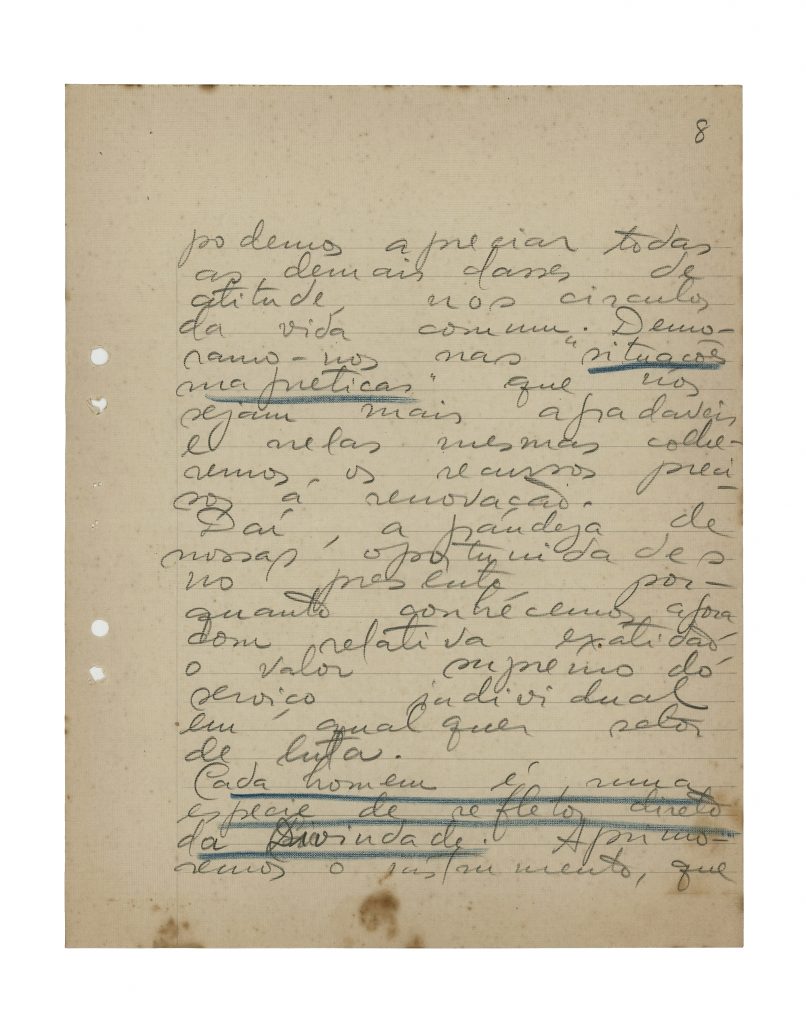 8
podemos apreciar todas
as demais classes de
atitude, nos circulos
da vida commum. Demo-
ramo-nos nas "situações
magneticas" que nós
sejam mais agradaveis
e nelas mesmas colhe-
remos os recursos preci-
sos á renovação.
Daí, a grandeza de
nossas oportunidades
no presente por-
quanto conhécemos agora
com relativa exatidão
o valor supremo do
serviço individual
em qualquer setor
de luta.
Cada homem é uma
especie de refletor direto
da Divindade. Aprimo-
remos o instrumento, que